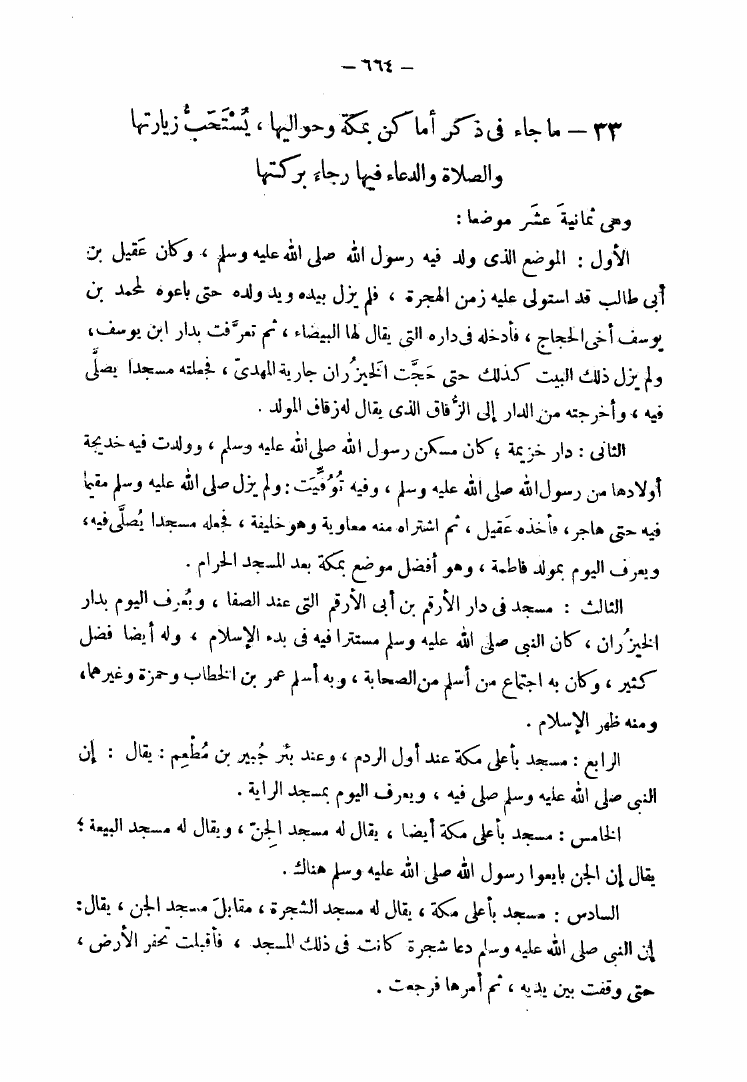 — ٦٦٤ —
٣٣ — ما جاء فى ذكر أماكن بمكة وحواليها ، يُسْتَحَبُّ زيارتها
والصلاة والدعاء فيها رجاء بركتها
وهى ثمانيةَ عشَر موضعا :
الأول : الموضع الذى ولد فيه رسول الله صلى الله عليه وسلم ، وكان عَقيل بن
أبى طالب قد استولى عليه زمن الهجرة ، فلم يزل بيده ويد ولده حتى باعوه لمحمد بن
يوسف أخى الحجاج ، فأدخله فى داره التى يقال لها البيضاء ، ثم تعرَّفت بدار ابن يوسف ،
ولم يزل ذلك البيت كذلك حتى حَجَّت الخيزُران جارية المهدىّ ، فجعلته مسجدا يصلَّى
فيه ، وأخرجته من الدار إلى الزُّقاق الذى يقال له زقاق المولد .
الثانى : دار خزيمة ؛ كان مسكن رسول الله صلى الله عليه وسلم ، وولدت فيه خديجة
أولادها من رسول الله صلى الله عليه وسلم ، وفيه تُوُفِّيَت : ولم يزل صلى الله عليه وسلم مقيما
فيه حتى هاجر ، فأخذه عَقيل ، ثم اشتراه منه معاوية وهو خليفة ، فجعله مسجدا يُصلَّى فيه ،
ويعرف اليوم بمولد فاطمة ، وهو أفضل موضع بمكة بعد المسجد الحرام .
الثالث : مسجد فى دار الأرقم بن أبى الأرقم التى عند الصفا ، ويُعرف اليوم بدار
الخيزُران ، كان النبى صلى الله عليه وسلم مستترا فيه فى بدء الإسلام ، وله أيضا فضل
كثير ، وكان به اجتماع من أسلم من الصحابة ، وبه أسلم عمر بن الخطاب وحمزة وغيرهما ،
ومنه ظهر الإسلام .
الرابع : مسجد بأعلى مكة عند أول الردم ، وعند بئر جُبير بن مُطْعِم : يقال : إن
النبى صلى الله عليه وسلم صلى فيه ، ويعرف اليوم بمسجد الراية .
الخامس : مسجد بأعلى مكة أيضا ، يقال له مسجد الجِنّ ، ويقال له مسجد البيعة ؛
يقال إن الجن بايعوا رسول الله صلى الله عليه وسلم هناك .
السادس : مسجد بأعلى مكة ، يقال له مسجد الشجرة ، مقابلَ مسجد الجن ، يقال :
إن النبى صلى الله عليه وسلم دعا شجرة كانت فى ذلك المسجد ، فأقبلت تحفر الأرض ،
حتى وقفت بين يديه ، ثم أمرها فرجعت .